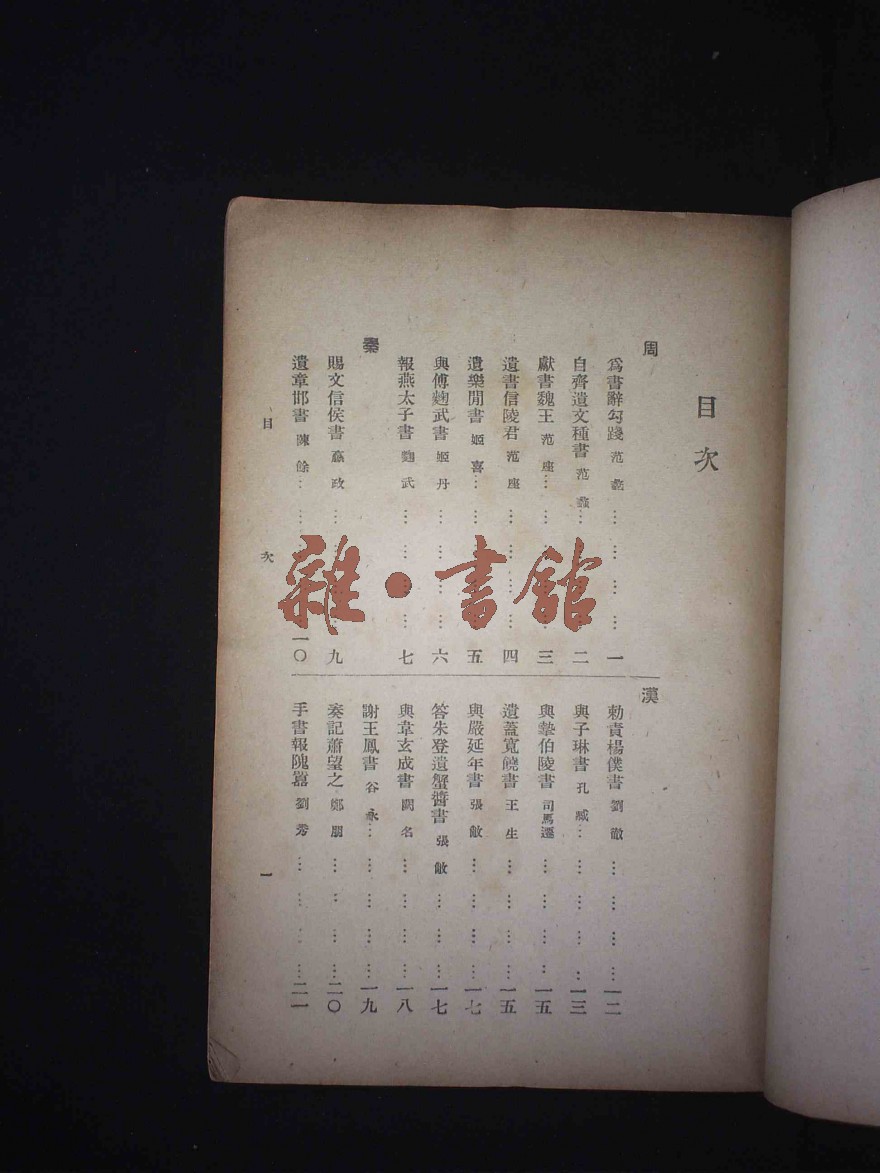 目次
周
爲書辭勾踐 范蠡 … … … … 一
自齊遺文種書 范蠡… … … … 二
獻書魏王 范座… … … … 三
遺書信陵君 范座 … … … … 四
遺樂閒書 姬喜… … … … 五
與傅麴武書 姬丹 … … … … 六
報燕太子書 麴武 … … … … 七
秦
賜文信侯書 嬴政 … … … … 九
遺章邯書 陳餘… … 一〇
漢
勅責楊僕書 劉徹 … … … …一二
與子琳書 孔臧… … … … …一三
與摯伯陵書 司馬遷 … … … …一五
遺蓋寬饒書 王生 … … … …一五
與嚴延年書 張敞 … … … …一七
答朱登遺蟹醬書 張敞 … … … …一七
與韋玄成書 闕名 … … … …一八
謝王鳳書 谷永… … … … …一九
奏記蕭望之 鄭朋 … … … …二〇
手書報隗囂 劉秀 … … … …二一
目次
一
雜·書館